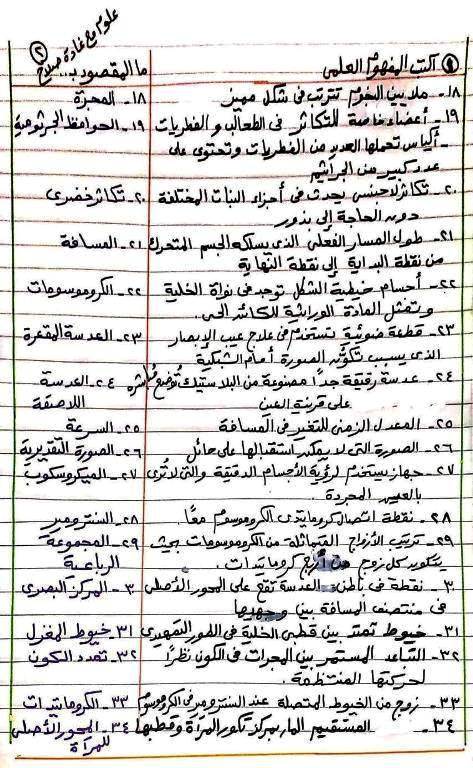 علوم مع غادة صلاح
(٢)
① اكتب المفهوم العلمى
ما المقصود بـ..
١٨- ملايين النجوم تترتب فى شكل مميز
١٨- المجرة
١٩- أعضاء خاصة للتكاثر فى الطحالب والفطريات
١٩- الحوافظ الجرثومية
- أكياس تحملها العديد من الفطريات وتحتوى على
عدد كبير من الجراثيم
٢٠- تكاثر لاجنسى يحدث فى أجزاء النبات المختلفة
٢٠- تكاثر خضرى
دون الحاجة إلى بذور
٢١- طول المسار الفعلى الذى يسلكه الجسم المتحرك
٢١- المسافة
من نقطة البداية إلى نقطة النهاية
٢٢- أجسام خيطية الشكل توجد فى نواة الخلية
٢٢- الكروموسومات
وتمثل المادة الوراثية للكائن الحى.
٢٣- قطعة ضوئية تستخدم فى علاج عيب الإبصار
٢٣- العدسة المقعرة
الذى يسبب تكون الصورة أمام الشبكية
٢٤- عدسة رقيقة جداً مصنوعة من البلاستيك توضع مباشرة
٢٤- العدسة
على قرنية العين
اللاصقة
٢٥- المعدل الزمنى للتغير فى المسافة
٢٥- السرعة
٢٦- الصورة التى لا يمكن استقبالها على حائل
٢٦- الصورة التقديرية
٢٧- جهاز يستخدم لرؤية الأجسام الدقيقة والتى لا تُرى
٢٧- الميكروسكوب
بالعين المجردة.
٢٨- نقطة اتصال كروماتيدى الكروموسوم معاً.
٢٨- السنترومير
٢٩- ترتيب الأزواج المتماثلة من الكروموسومات بحيث
٢٩- المجموعة
يتكون كل زوج من أربع كروماتيدات.
الرباعية
٣٠- نقطة فى باطن العدسة تقع على المحور الأصلى
٣٠- المركز البصرى
فى منتصف المسافة بين وجهيها
٣١- خيوط تمتد بين قطبى الخلية فى الطور التمهيدى
٣١- خيوط المغزل
٣٢- التباعد المستمر بين المجرات فى الكون نظراً
٣٢- تمدد الكون
لحركتها المنتظمة.
٣٣- زوج من الخيوط المتصلة عند السنترومير فى الكروموسوم
٣٣- الكروماتيدات
٣٤- المستقيم المار بمركز تكور المرآة وقطبها
٣٤- المحور الأصلى
للمرآة